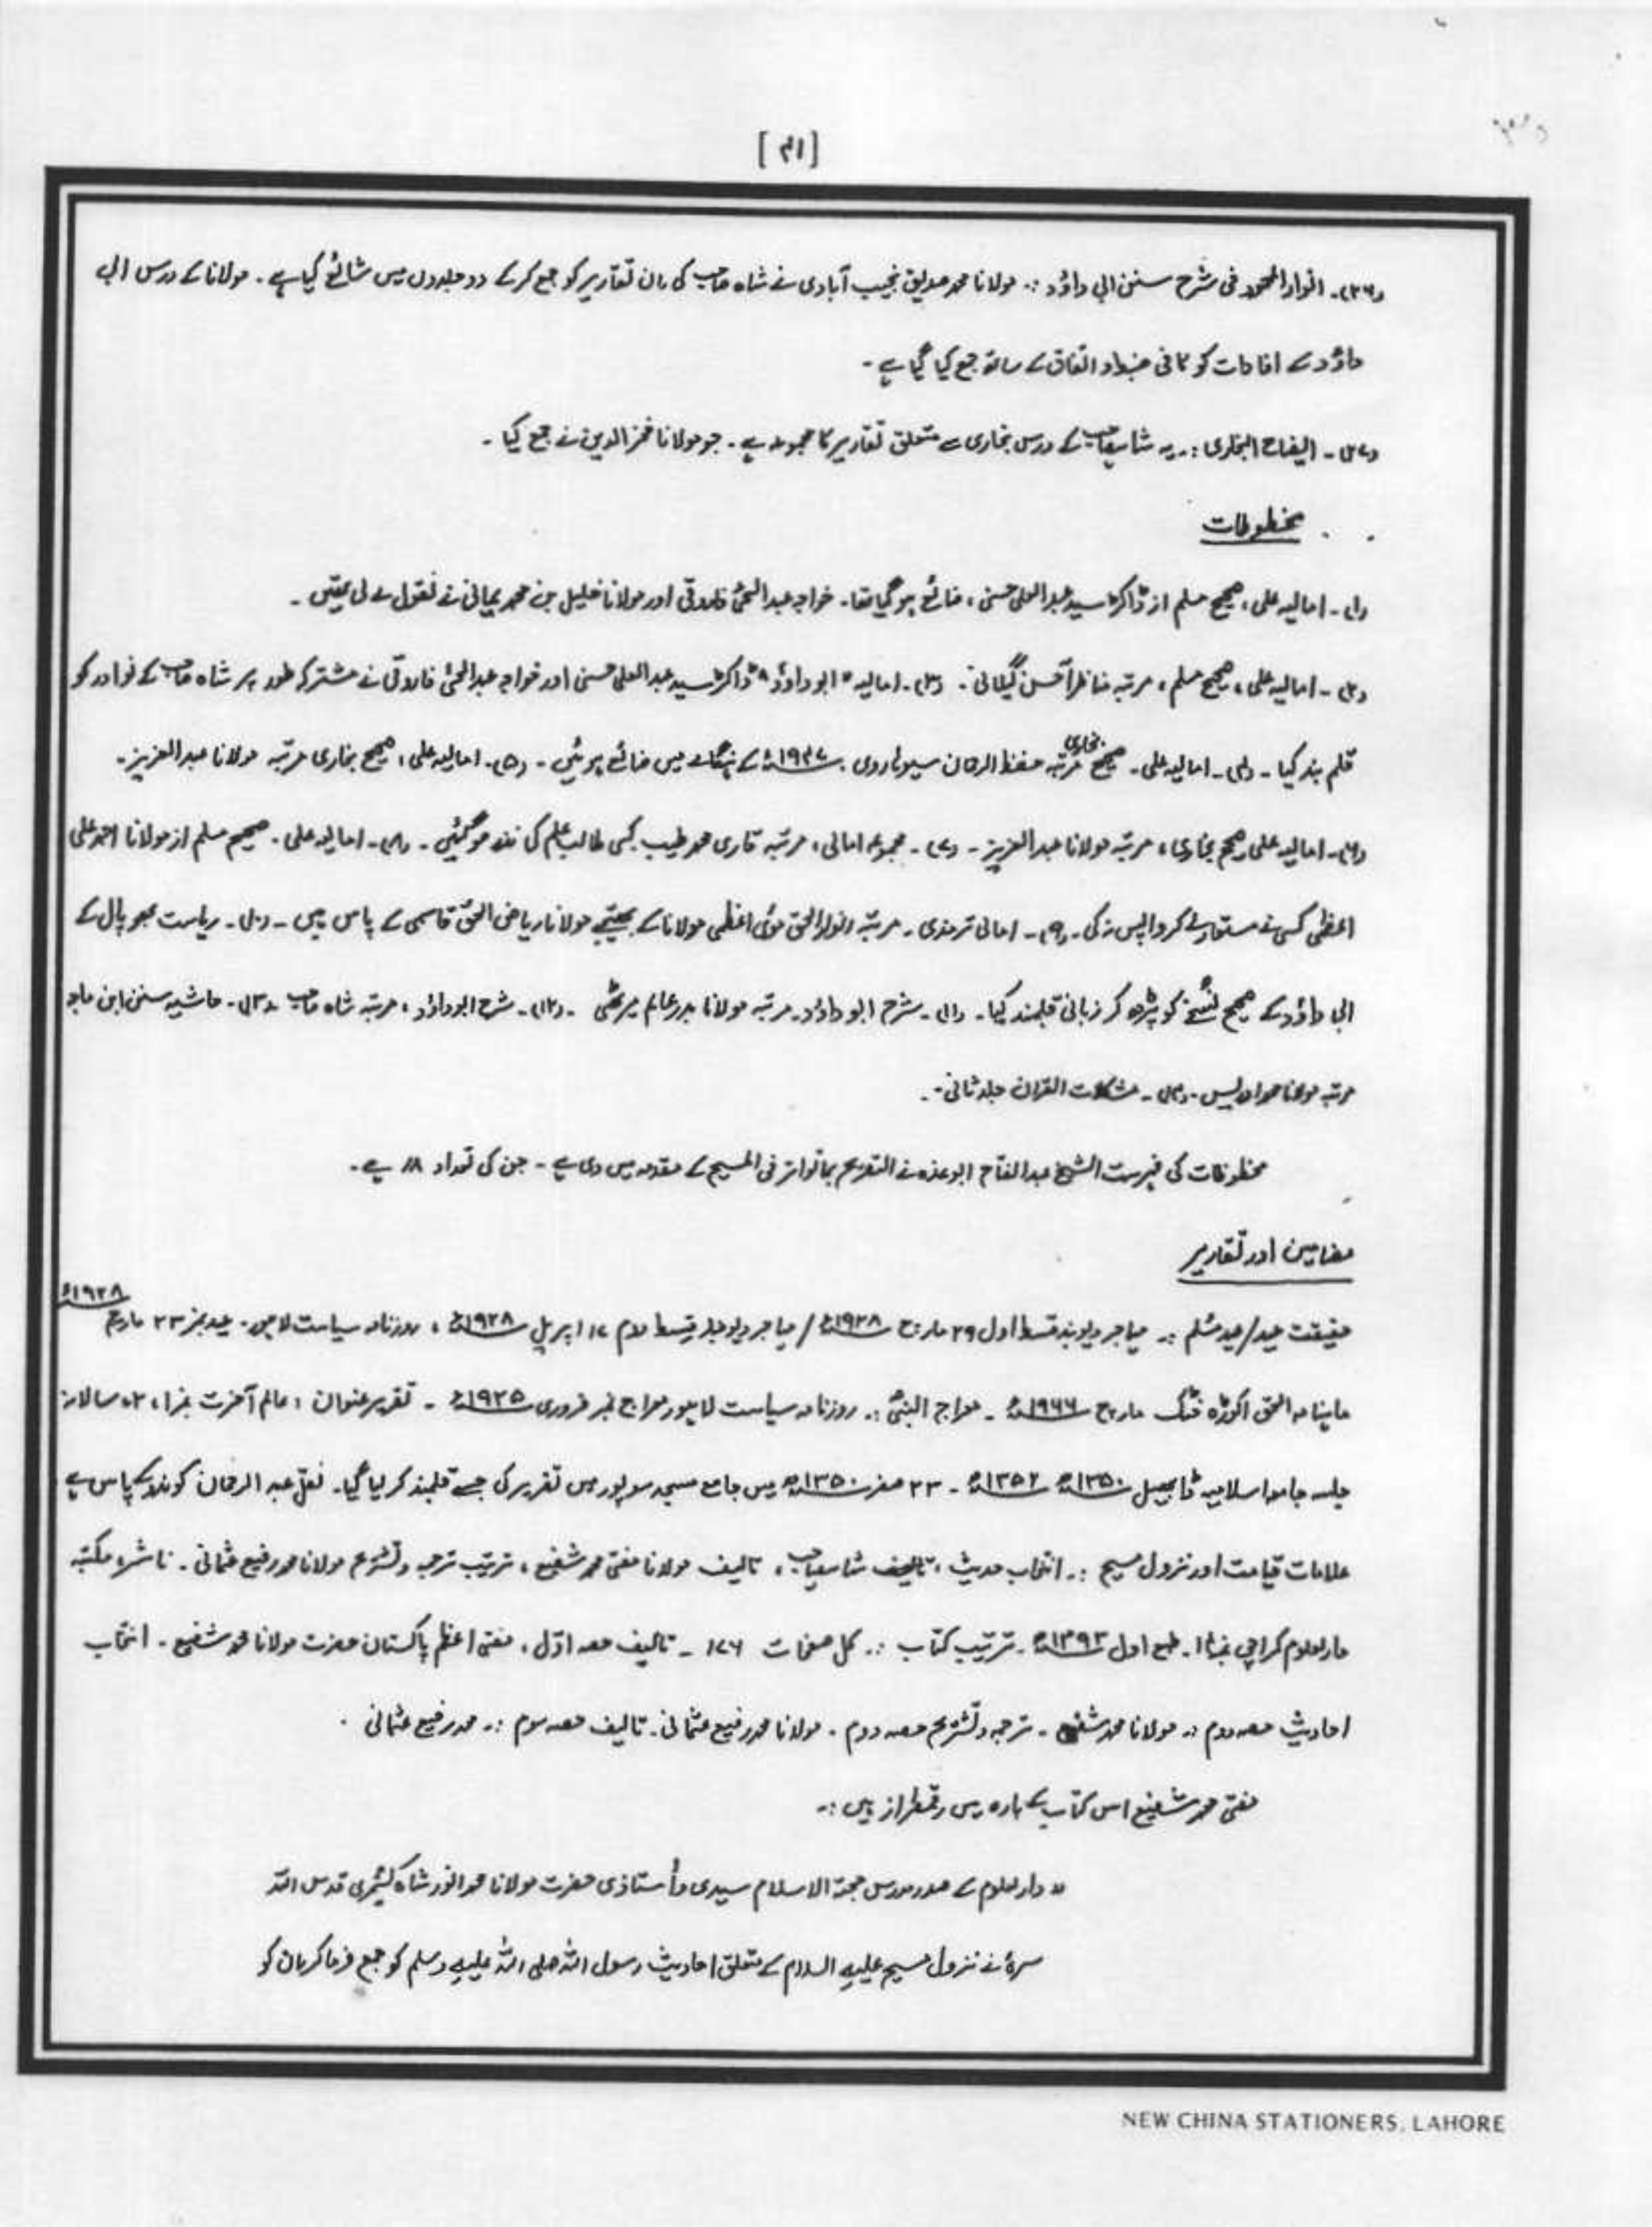 [۴۱]
(۳۶)۔ انوار المحمود فی شرح سنن ابی داؤد :۔ مولانا محمد صدیق نجیب آبادی نے شاہ صاحب کی ان تقاریر کو جمع کرکے دو جلدوں میں شائع کیا ہے ۔ مولانا کے درس ابی
داؤد کے افادات کو کافی ضبط و اتقان کے ساتھ جمع کیا گیا ہے ۔
(۳۷)۔ ایضاح البخاری :۔ یہ شاہ صاحب کے درس بخاری سے متعلق تقاریر کا مجموعہ ہے ۔ جو مولانا فخر الدین نے جمع کیا ۔
مخطوطات
(۱)۔ امالیہ علی، صحیح مسلم از ڈاکٹر سید عبد العلی حسنی، ضائع ہو گیا تھا۔ خواجہ عبد الحئی فاروقی اور مولانا خلیل بن محمد یمانی نے نقول لے لی تھیں ۔
(۲)۔ امالیہ علی، صحیح مسلم، مرتبہ مناظر احسن گیلانی ۔ (۳)۔ امالیہ "ابو داؤد" ڈاکٹر سید عبد العلی حسنی اور خواجہ عبد الحئی فاروقی نے مشترکہ طور پر شاہ صاحب کے نوادر کو
قلم بند کیا ۔ (۴)۔ امالیہ علی ۔ صحیح بخاری مرتبہ حفظ الرحمان سیوہاروی ۔ ۱۹۴۷ء کے ہنگامے میں ضائع ہوئی ۔ (۵)۔ امالیہ علی، صحیح بخاری مرتبہ مولانا عبد العزیز ۔
(۶)۔ امالیہ علی صحیح بخاری، مرتبہ مولانا عبد العزیز ۔ (۷)۔ مجموعہ امالی، مرتبہ قاری محمد طیب کسی طالب علم کی نذر ہو گئیں ۔ (۸)۔ امالیہ علی ۔ صحیح مسلم از مولانا احمد علی
اعظمی کسی نے مستعار لے کر واپس نہ کی ۔ (۹)۔ امالی ترمذی ۔ مرتبہ انوار الحق مئوی اعظمی مولانا کے بھتیجے مولانا ریاض الحق قاسمی کے پاس ہیں ۔ (۱۰)۔ ریاست بھوپال کے
ابی داؤد کے صحیح نسخے کو پڑھ کر زبانی قلمبند کیا ۔ (۱۱)۔ شرح ابو داؤد ۔ مرتبہ مولانا بدر عالم میرٹھی ۔ (۱۲)۔ شرح ابو داؤد، مرتبہ شاہ صاحب (۱۳)۔ حاشیہ سنن ابن ماجہ
مرتبہ مولانا محمد ادریس ۔ (۱۴)۔ مشکلات القرآن جلد ثانی ۔
مخطوطات کی فہرست الشیخ عبد الفتاح ابو غدہ نے التصریح بما تواتر فی المسیح کے مقدمہ میں دی ہے ۔ جن کی تعداد ۱۸ ہے ۔
مضامین اور تقاریر
حقیقت عید/عید مسلم :۔ مہاجر دیوبند قسط اول ۲۹ مارچ ۱۹۲۸ء / مہاجر دیوبند قسط دوم ۱۷ اپریل ۱۹۲۸ء، روزنامہ سیاست لاہور ۔ عید نمبر ۲۳ مارچ ۱۹۲۸ء
ماہنامہ الحق اکوڑہ خٹک مارچ ۱۹۶۶ء ۔ معراج النبیؐ :۔ روزنامہ سیاست لاہور معراج نمبر فروری ۱۹۲۵ء ۔ تقریر عنوان : عالم آخرت نمبر۱، ۲، سالانہ
جلسہ جامعہ اسلامیہ ڈابھیل ۱۳۵۰ھ ۱۳۵۲ھ ۔ ۲۳ صفر ۱۳۵۰ھ میں جامع مسجد سوپور میں تقریر کی جسے قلمبند کر لیا گیا ۔ نقل عبد الرحمان کوندو کے پاس ہے
علامات قیامت اور نزول مسیح :۔ انتخاب حدیث، تالیف شاہ صاحب، تالیف مولانا مفتی محمد شفیع، ترتیب ترجمہ و تشریح مولانا محمد رفیع عثمانی ۔ ناشر، مکتبہ
دار العلوم کراچی نمبر۱۴ ۔ طبع اول ۱۳۹۳ھ ۔ ترتیب کتاب :۔ کل صفحات ۱۷۶ ۔ تالیف حصہ اوّل، مفتی اعظم پاکستان حضرت مولانا محمد شفیع ۔ انتخاب
احادیث حصہ دوم :۔ مولانا محمد شفیع ۔ ترجمہ و تشریح حصہ دوم ۔ مولانا محمد رفیع عثمانی ۔ تالیف حصہ سوم :۔ محمد رفیع عثمانی ۔
مفتی محمد شفیع اس کتاب کے بارہ میں رقمطراز ہیں :۔
"دار العلوم کے صدر مدرس حجۃ الاسلام سیدی و أستاذی حضرت مولانا محمد انور شاہ کشمیری قدس اللہ
سرہٗ نے نزول مسیح علیہ السلام کے متعلق احادیث رسول اللہ صلی اللہ علیہ وسلم کو جمع فرما کر ان کو
NEW CHINA STATIONERS, LAHORE